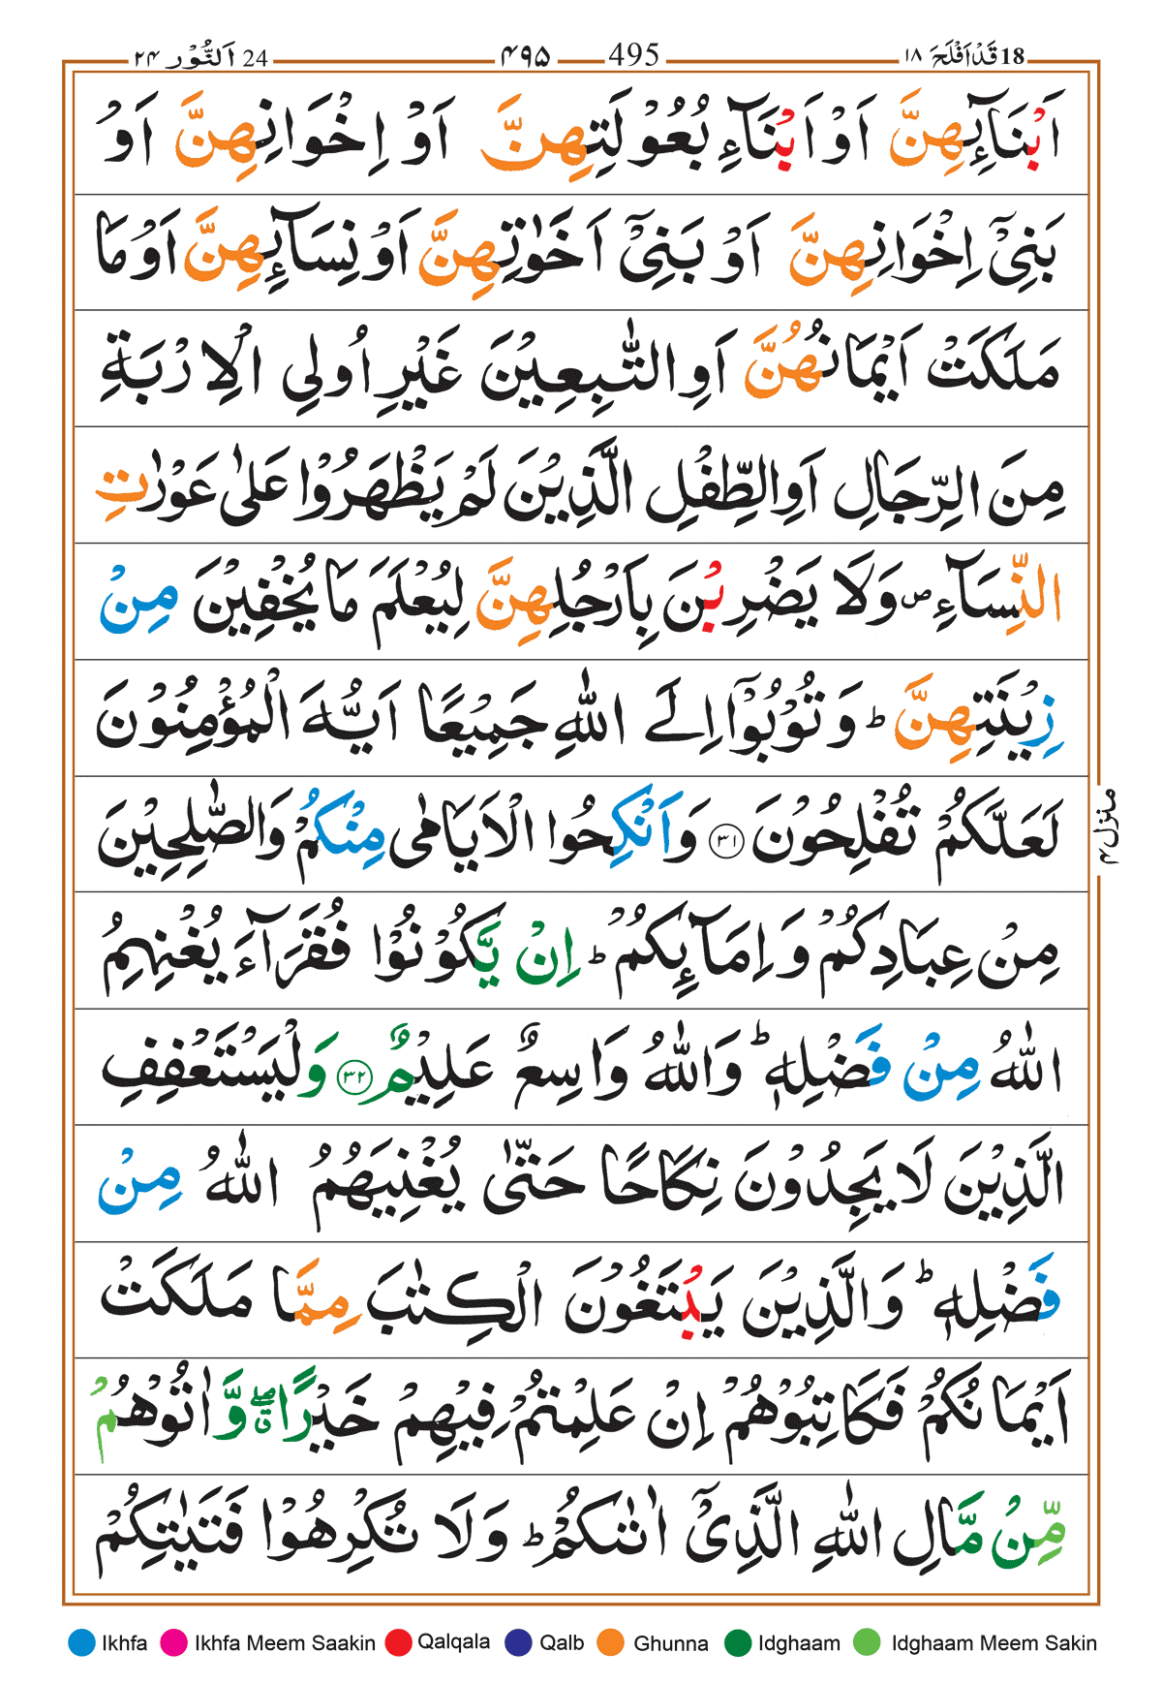 18 قَدْ اَفْلَحَ ١٨ 495 ۴۹۵ 24 اَلنُّوْر ٢۴
اَبْنَآئِهِنَّ اَوْ اَبْنَآءِ بُعُوْلَتِهِنَّ اَوْ اِخْوَانِهِنَّ اَوْ
بَنِیْۤ اِخْوَانِهِنَّ اَوْ بَنِیْۤ اَخَوٰتِهِنَّ اَوْ نِسَآئِهِنَّ اَوْ مَا
مَلَكَتْ اَیْمَانُهُنَّ اَوِ التّٰبِعِیْنَ غَیْرِ اُولِی الْاِرْبَةِ
مِنَ الرِّجَالِ اَوِ الطِّفْلِ الَّذِیْنَ لَمْ یَظْهَرُوْا عَلٰی عَوْرٰتِ
النِّسَآءِ ۪ وَلَا یَضْرِبْنَ بِاَرْجُلِهِنَّ لِیُعْلَمَ مَا یُخْفِیْنَ مِنْ
زِیْنَتِهِنَّ ؕ وَتُوْبُوْۤا اِلَی اللّٰهِ جَمِیْعًا اَیُّهَ الْمُؤْمِنُوْنَ
لَعَلَّكُمْ تُفْلِحُوْنَ ۝٣١ وَاَنْكِحُوا الْاَیَامٰی مِنْكُمْ وَالصّٰلِحِیْنَ
مِنْ عِبَادِكُمْ وَاِمَآئِكُمْ ؕ اِنْ یَّكُوْنُوْا فُقَرَآءَ یُغْنِهِمُ
اللّٰهُ مِنْ فَضْلِهٖ ؕ وَاللّٰهُ وَاسِعٌ عَلِیْمٌ ۝٣٢ وَلْیَسْتَعْفِفِ
الَّذِیْنَ لَا یَجِدُوْنَ نِكَاحًا حَتّٰی یُغْنِیَهُمُ اللّٰهُ مِنْ
فَضْلِهٖ ؕ وَالَّذِیْنَ یَبْتَغُوْنَ الْكِتٰبَ مِمَّا مَلَكَتْ
اَیْمَانُكُمْ فَكَاتِبُوْهُمْ اِنْ عَلِمْتُمْ فِیْهِمْ خَیْرًا ۖۗ وَّاٰتُوْهُمْ
مِّنْ مَّالِ اللّٰهِ الَّذِیْۤ اٰتٰىكُمْ ؕ وَلَا تُكْرِهُوْا فَتَیٰتِكُمْ
منزل ۴
Ikhfa Ikhfa Meem Saakin Qalqala Qalb Ghunna Idghaam Idghaam Meem Sakin